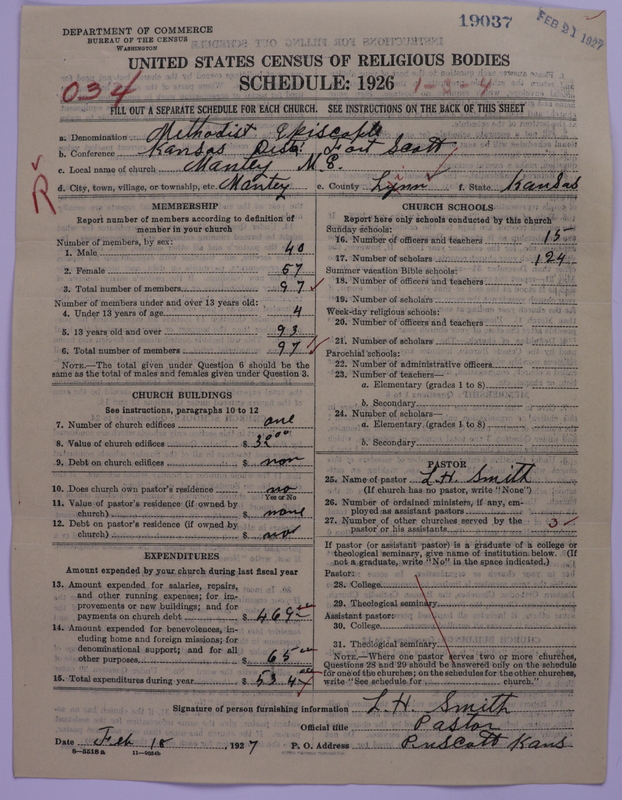 19037
FEB 21 1927
DEPARTMENT OF COMMERCE
BUREAU OF THE CENSUS
WASHINGTON
UNITED STATES CENSUS OF RELIGIOUS BODIES
SCHEDULE: 1926
034
1-3-4
FILL OUT A SEPARATE SCHEDULE FOR EACH CHURCH. SEE INSTRUCTIONS ON THE BACK OF THIS SHEET
a. Denomination Methodist Episcople
b. Conference Kansas Dist. Fort Scott
c. Local name of church Mantey M.E.
d. City, town, village, or township, etc. Mantey e. County Lynn f. State Kansas
R
MEMBERSHIP
Report number of members according to definition of
member in your church
Number of members, by sex:
1. Male 40
2. Female 57
3. Total number of members 97
Number of members under and over 13 years old:
4. Under 13 years of age 4
5. 13 years old and over 93
6. Total number of members 97
NOTE.—The total given under Question 6 should be
same as the total of males and females given under Question 3.
CHURCH BUILDINGS
See instructions, paragraphs 10 to 12
7. Number of church edifices one
8. Value of church edifices $ 3200
9. Debt on church edifices $ non
10. Does church own pastor's residence no
Yes or No
11. Value of pastor's residence (if owned by
church) $ none
12. Debt on pastor's residence (if owned by
church) $ non
EXPENDITURES
Amount expended by your church during last fiscal year
13. Amount expended for salaries, repairs,
and other running expenses; for im-
provements or new buildings; and for
payments on church debt $ 469
14. Amount expended for benevolences, in-
cluding home and foreign missions; for
denominational support; and for all
other purposes $ 65
15. Total expenditures during year $ 534
CHURCH SCHOOLS
Report here only schools conducted by this church
Sunday schools:
16. Number of officers and teachers 15
17. Number of scholars 124
Summer vacation Bible schools:
18. Number of officers and teachers
19. Number of scholars
Week-day religious schools:
20. Number of officers and teachers
21. Number of scholars
Parochial schools:
22. Number of administrative officers
23. Number of teachers—
a. Elementary (grades 1 to 8)
b. Secondary
24. Number of scholars—
a. Elementary (grades 1 to 8)
b. Secondary
PASTOR
25. Name of pastor L. H. Smith
(If church has no pastor, write "None")
26. Number of ordained ministers, if any, em-
ployed as assistant pastors
27. Number of other churches served by the
pastor or his assistants 3
If pastor (or assistant pastor) is a graduate of a college or
theological seminary, give name of institution below. (If
not a graduate, write "No" in the space indicated.)
Pastor:
28. College
29. Theological seminary
Assistant pastor:
30. College
31. Theological seminary
NOTE.—Where one pastor serves two or more churches,
Questions 28 and 29 should be answered only on the schedule
for one of the churches; on the schedules for the other churches,
write "See schedule for church."
Signature of person furnishing information L. H. Smith
Official title Pastor
Date Feb 18, 1927 P. O. Address Prescott Kans
8—5518a